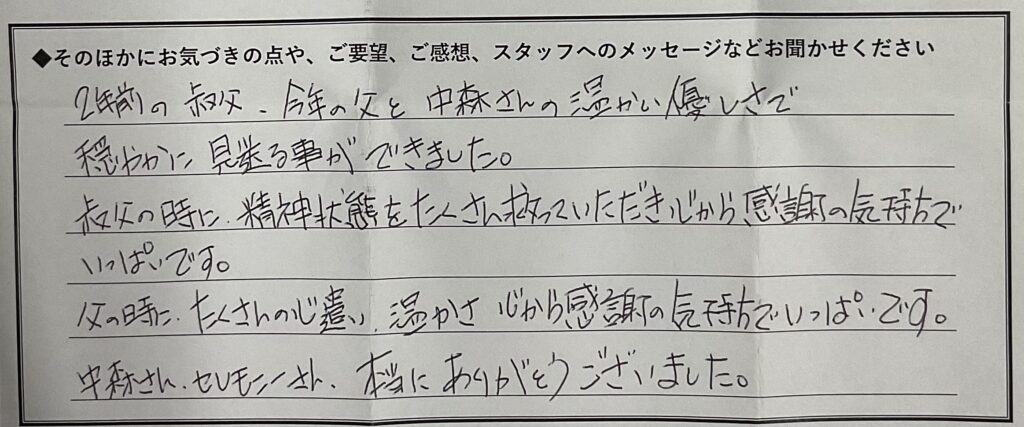 ◆そのほかにお気づきの点や、ご要望、ご感想、スタッフへのメッセージなどお聞かせください
2年前の叔父、今年の父と中森さんの温かい優しさで
穏やかに見送る事ができました。
叔父の時に、精神状態をたくさん救っていただき心から感謝の気持ちで
いっぱいです。
父の時に、たくさんの心遣い、温かさ心から感謝の気持ちでいっぱいです。
中森さん、セレモニーさん、本当にありがとうございました。